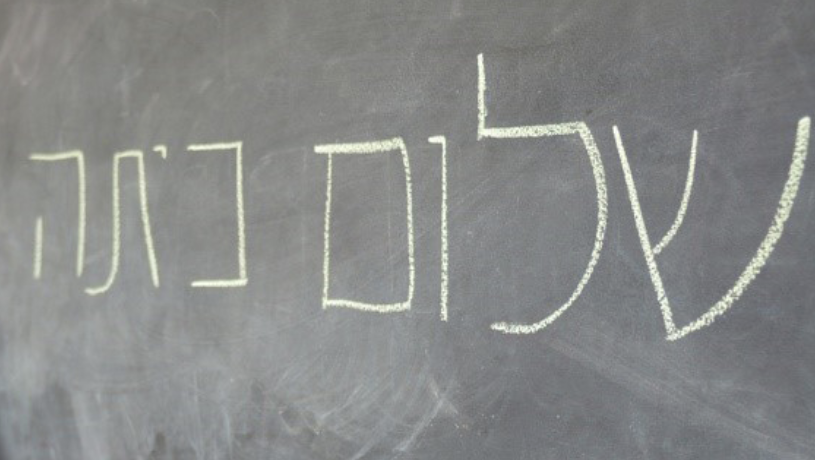 שלום כיתה